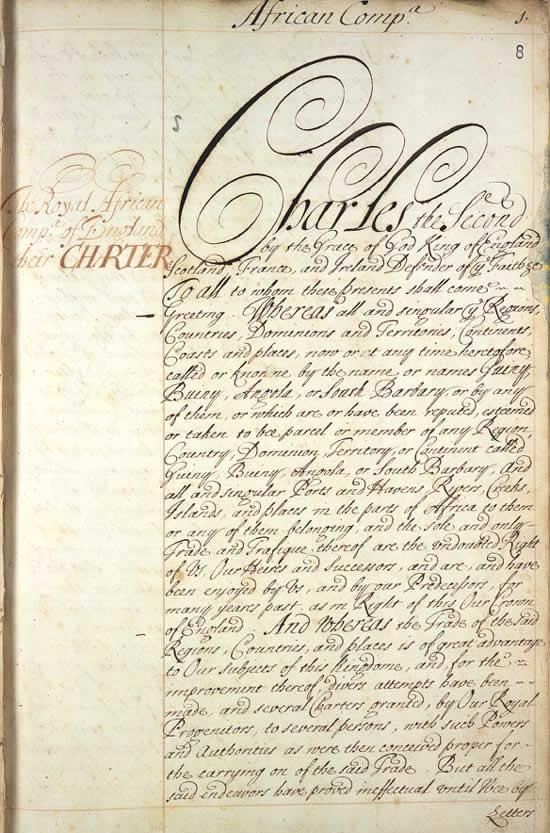 African Comp.ª
1.
8
2
The Royal African
Comp.ª of England
their CHARTER
Charles the Second
by the Grace of God King of England
Scotland, France, and Ireland Defender of yᵉ Faith &c
To all to whom these presents shall come
Greeting. Whereas all and singular yᵉ Regions,
Countries, Dominions and Territories, Continents,
Coasts and places, now or at any time heretofore
called or knowne by the name, or names Guiny,
Buiny, Angola, or South Barbary, or by any
of them, or which are or have been reputed, esteemed
or taken to bee parcel or member of any Region,
Country, Dominion, Territory, or Continent called
Guiny, Buiny, Angola, or South Barbary, and
all and singular Ports and Havens, Rivers, Creeks,
Islands, and places in the parts of Affrica to them
or any of them belonging, and the sole and only
Trade and Trafique thereof are the undoubted Right
of Us, Our Heires and Successors, and are, and have
been enjoyed by Us, and by our Predecessors, for
many years past, as in Right of this Our Crown
of England. And Whereas the Trade of the said
Regions, Countries, and places is of great advantage
to Our Subjects of this Kingdome, and, for the
improvement thereof, divers attempts have been
made, and several Charters granted, by Our Royal
Progenitors, to several persons, with such Powers
and Authorities as were then conceived proper for
the carrying on of the said Trade. But all the
said endeavors have proved ineffectual until Wee by
Letters